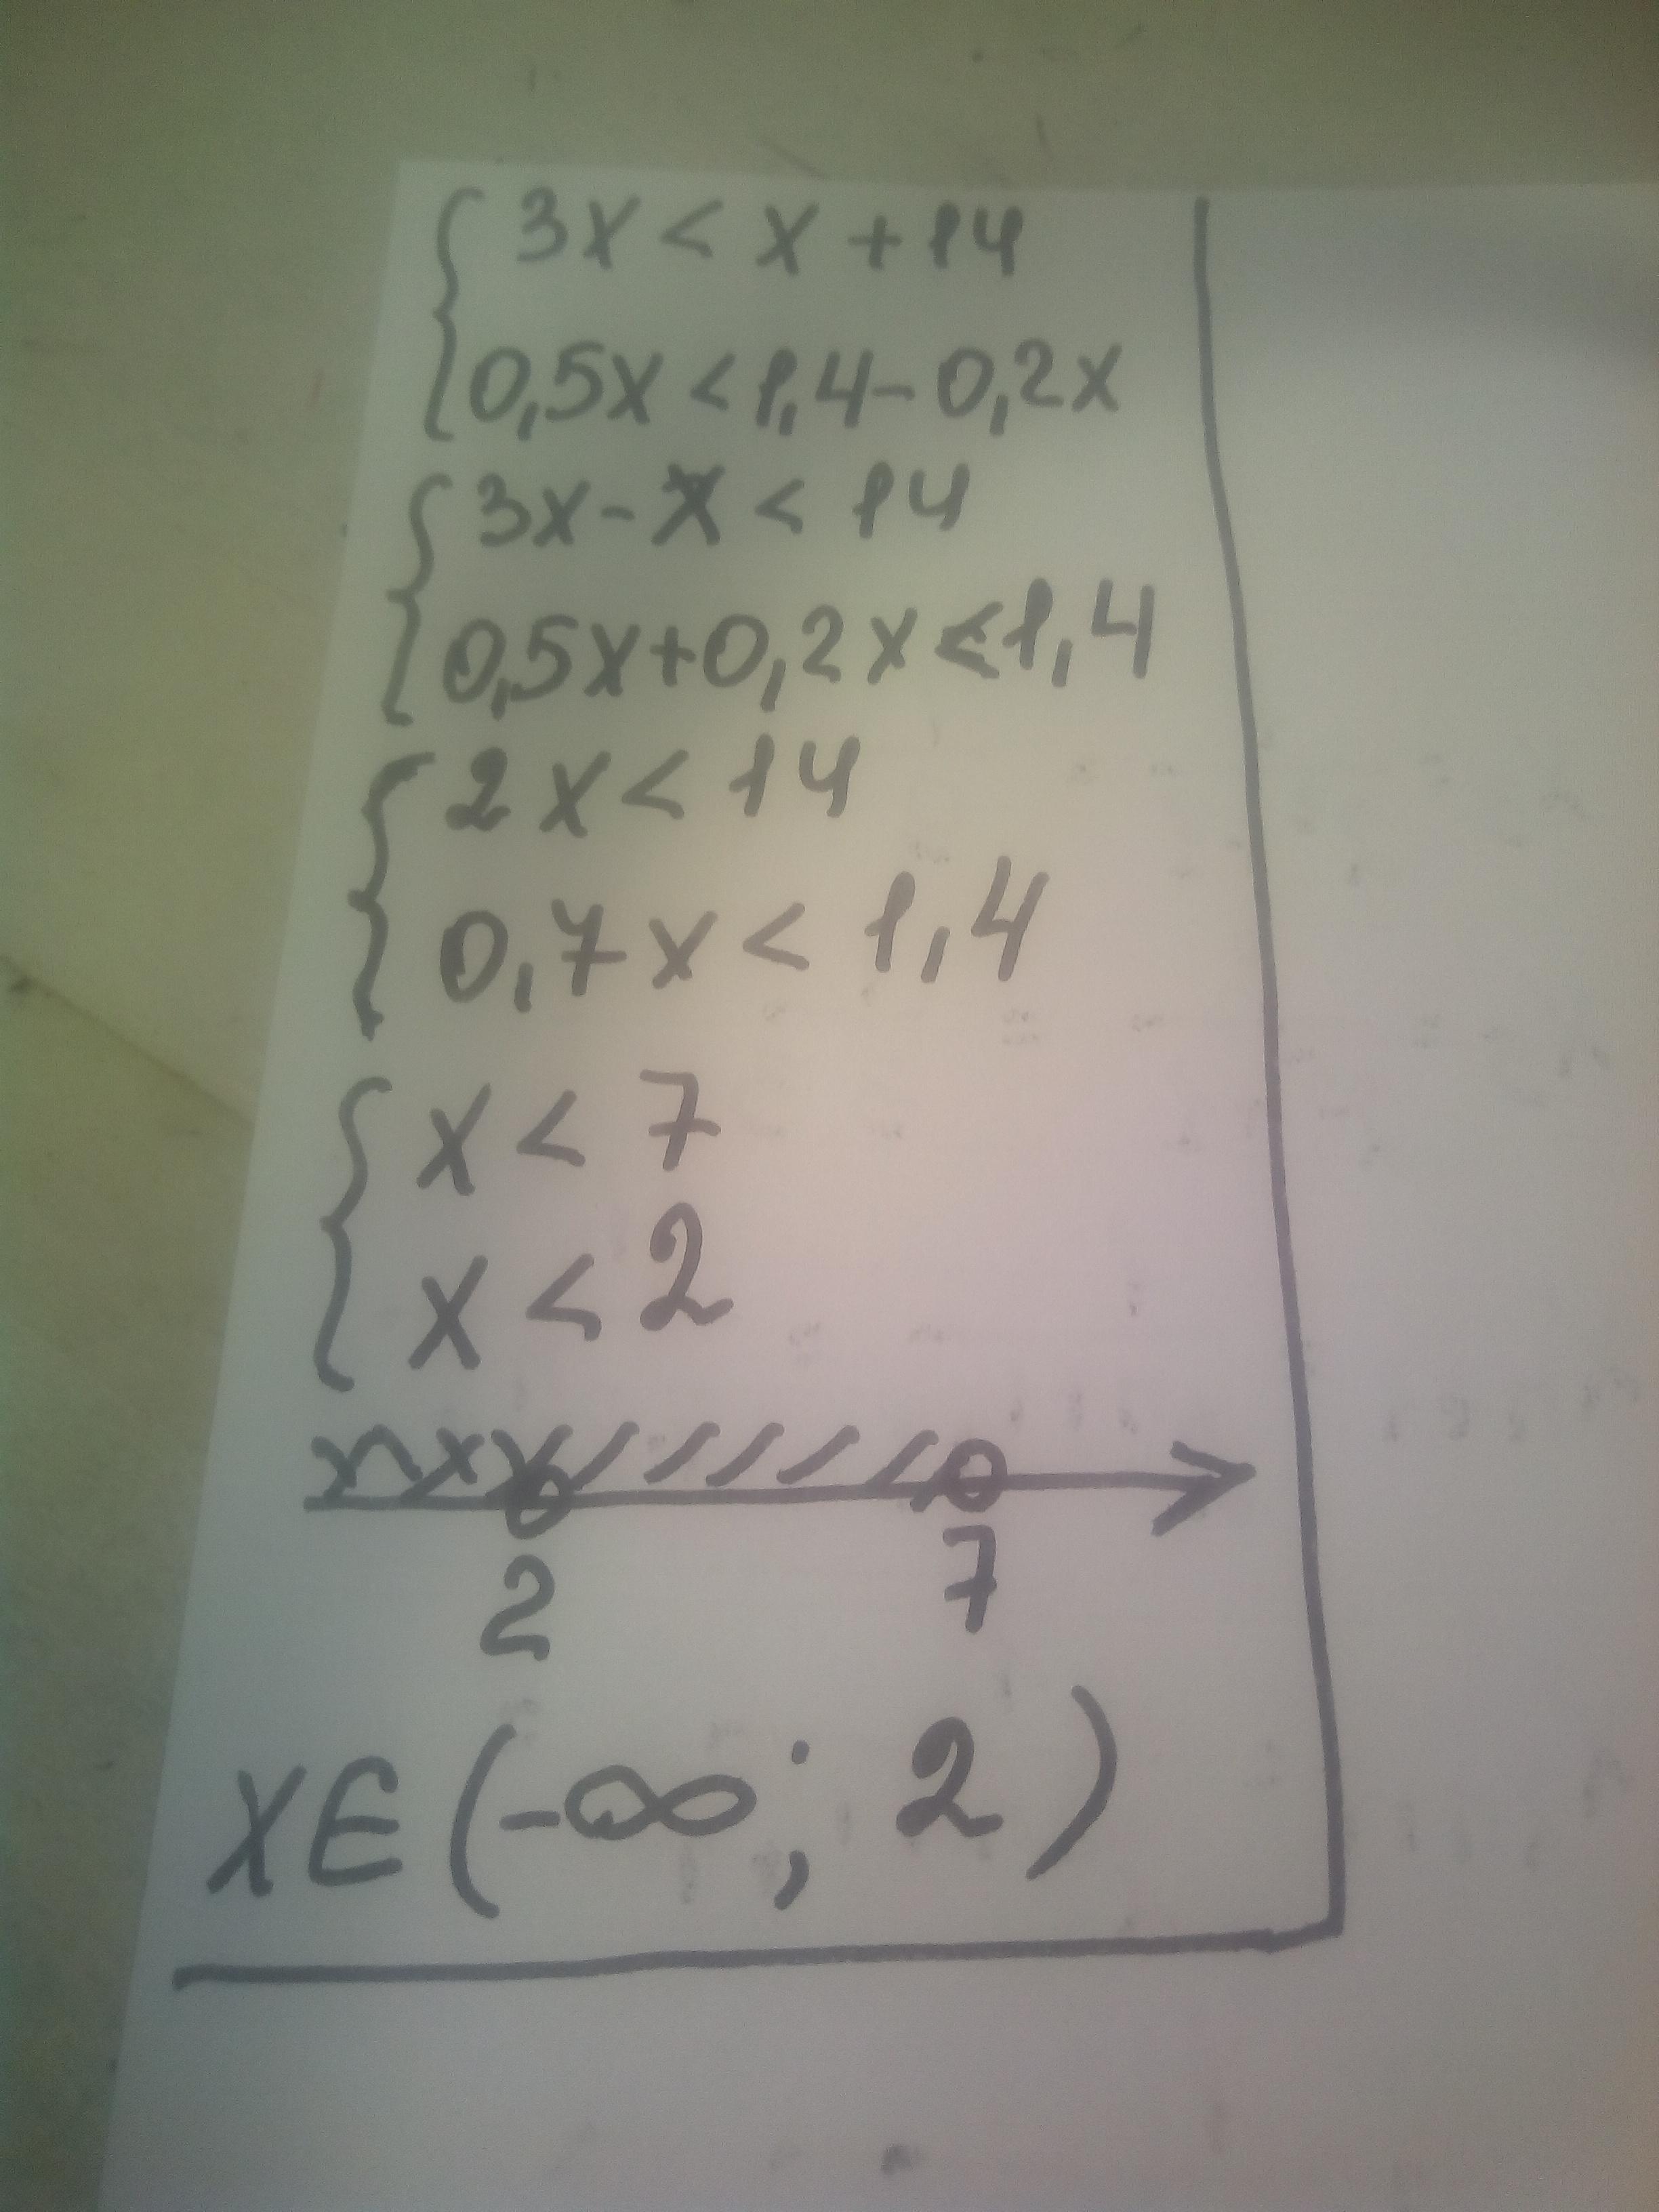 3x < x + 14
0,5x < 1,4 - 0,2x
3x - x < 14
0,5x + 0,2x < 1,4
2x < 14
0,7x < 1,4
x < 7
x < 2
2 7
x ∈ (-∞; 2)